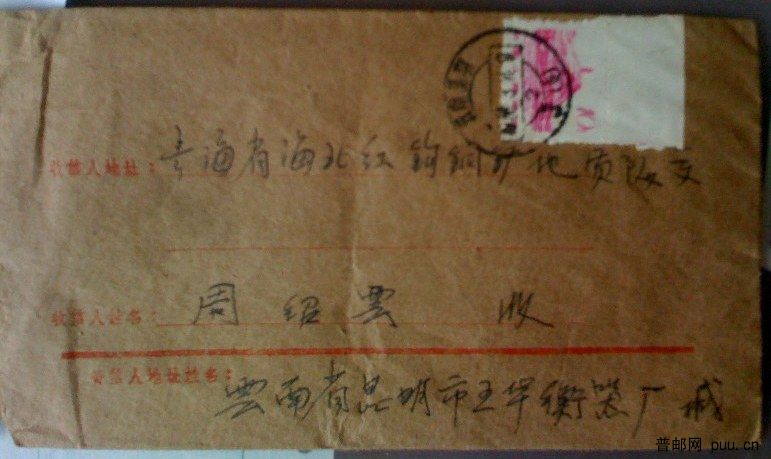 收信人地址：青海省海北红钩铜矿地质队交
收信人姓名：周绍云 收
寄信人地址姓名：
云南省昆明市五华衡器厂戚
普邮网 puu.cn